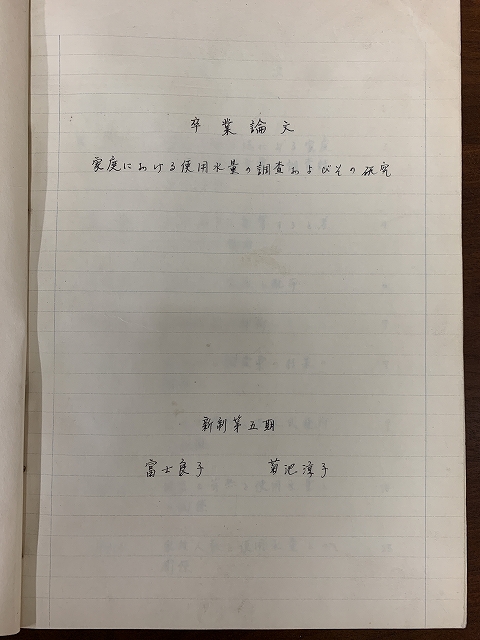 卒業論文
家庭における使用水量の調査およびその研究
新制第五期
富士良子 菊池淳子